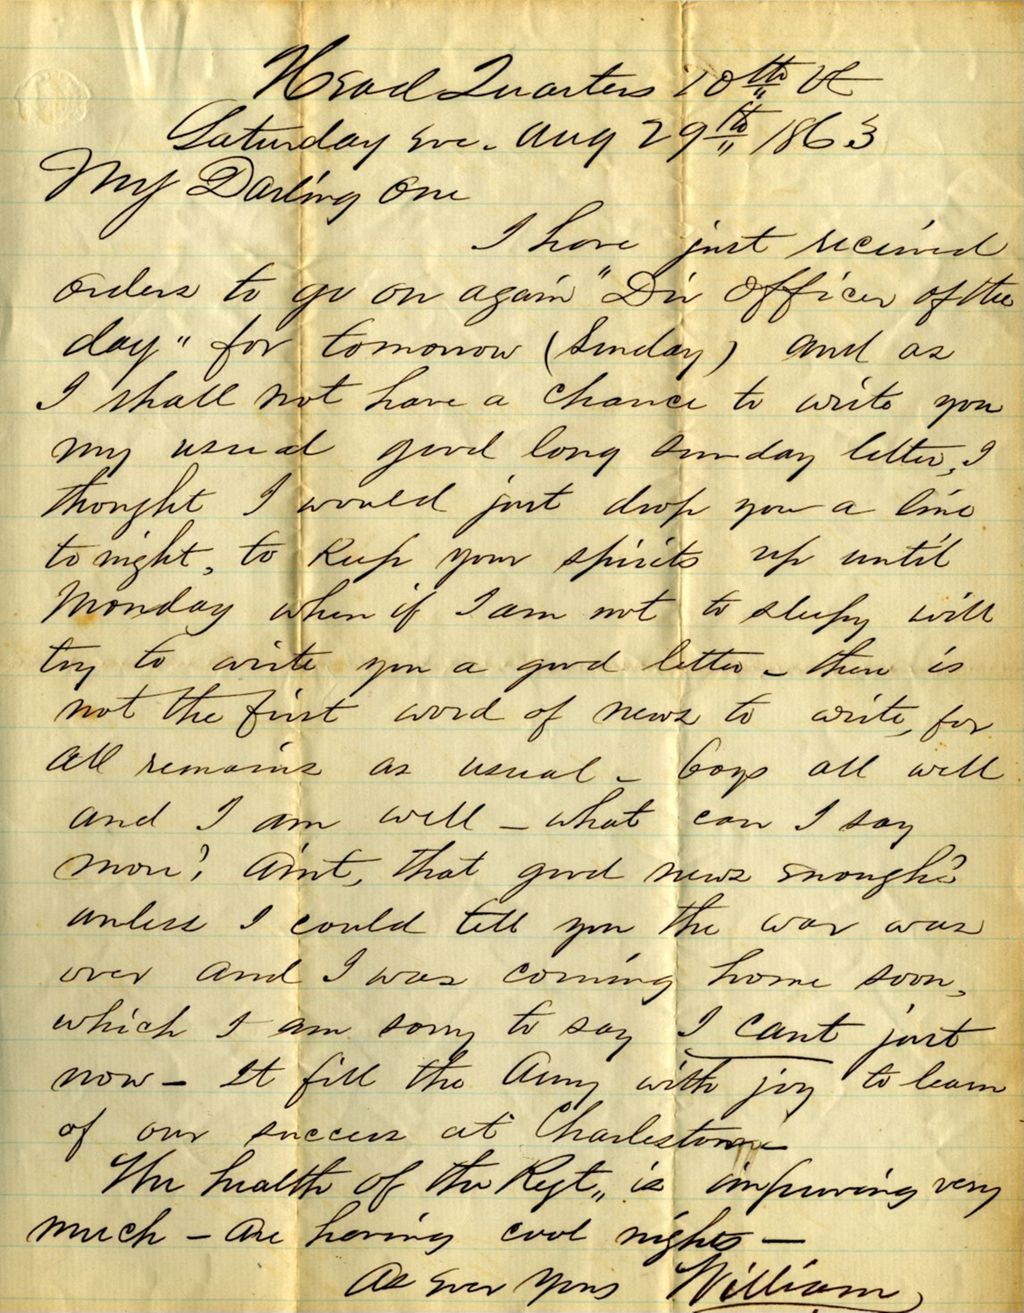 Head Quarters 10th Vt
Saturday Eve. Aug 29th 1863
My Darling One
I have just received
orders to go on again "Div Officer of the
day" for tomorrow (Sunday) and as
I shall not have a chance to write you
my usual good long Sunday letter, I
thought I would just drop you a line
to night, to keep your spirits up until
Monday when if I am not to sleepy will
try to write you a good letter - there is
not the first word of news to write, for
all remains as usual - boys all well
and I am well - what can I say
more? Aint, that good news enough?
unless I could tell you the war was
over and I was coming home soon,
which I am sorry to say I cant just
now - It fill the Army with joy to learn
of our success at Charlestown
The health of the Regt,, is improving very
much - are having cool nights -
As Ever Yours William